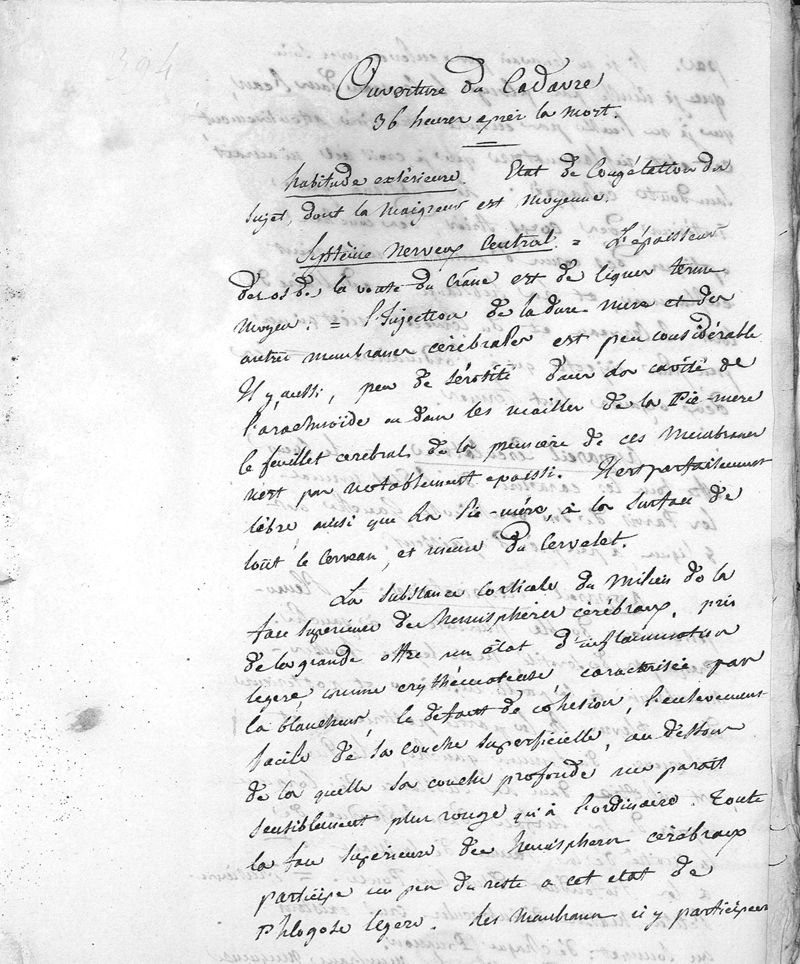 394
Ouverture du Cadavre
36 heures après la mort.
habitude extérieure Etat de Congélation du
sujet, dont la maigreur est moyenne
Système nerveux Central. = L'épaisseur
des os de la voute du Crâne est de lignes terme
moyen. = l'Injection de la dure-mère et des
autres membranes cérébrales est peu considérable
Il y aussi, peu de sérosité dans la cavité de
l'arachnoïde ou dans les mailles de la Pie-mère
le feuillet cerebral de la première de ces membranes
n'est pas notablement epaissi. Il est parfaitement
libre, ainsi que la Pie-mère, à la surface de
tout le Cerveau, et même du Cervelet.
La substance Corticale du milieu de la
face superieure des hemisphères cérébraux, près
de la grande offre un état d'inflammation
légère, comme erythémateuse caracterisée par
la blancheur, le defaut de cohésion, l'enlevement
facile de sa couche superficielle, au dessous
de la quelle sa couche profonde me parait
sensiblement plus rouge qu'à l'ordinaire. Toute
la face supérieure des hemisphères cérébraux
participe un peu du reste a cet etat de
Phlogose légère. Les membranes n'y participent